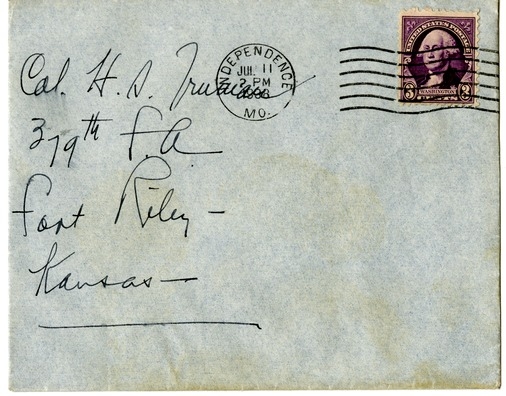 Col. H. S. Truman
379th F.A.
Fort Riley –
Kansas –
INDEPENDENCE
JUL 11
2 PM
MO.
UNITED STATES POSTAGE
3 WASHINGTON 3
CENTS